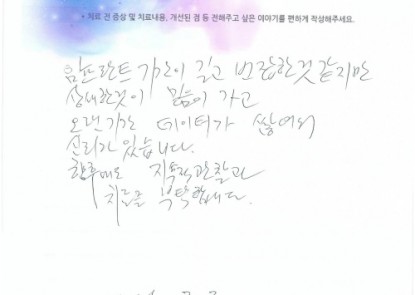 • 치료 전 증상 및 치료내용, 개선된 점 등 전해주고 싶은 이야기를 편하게 작성해주세요.
임프란트 기간이 길고 번잡한것 같지만
상세한것이 믿음이 가고
오랜기간 데이터가 쌓여서
신뢰가 있습니다.
향후에도 지속적 관찰과
치료를 부탁합니다.